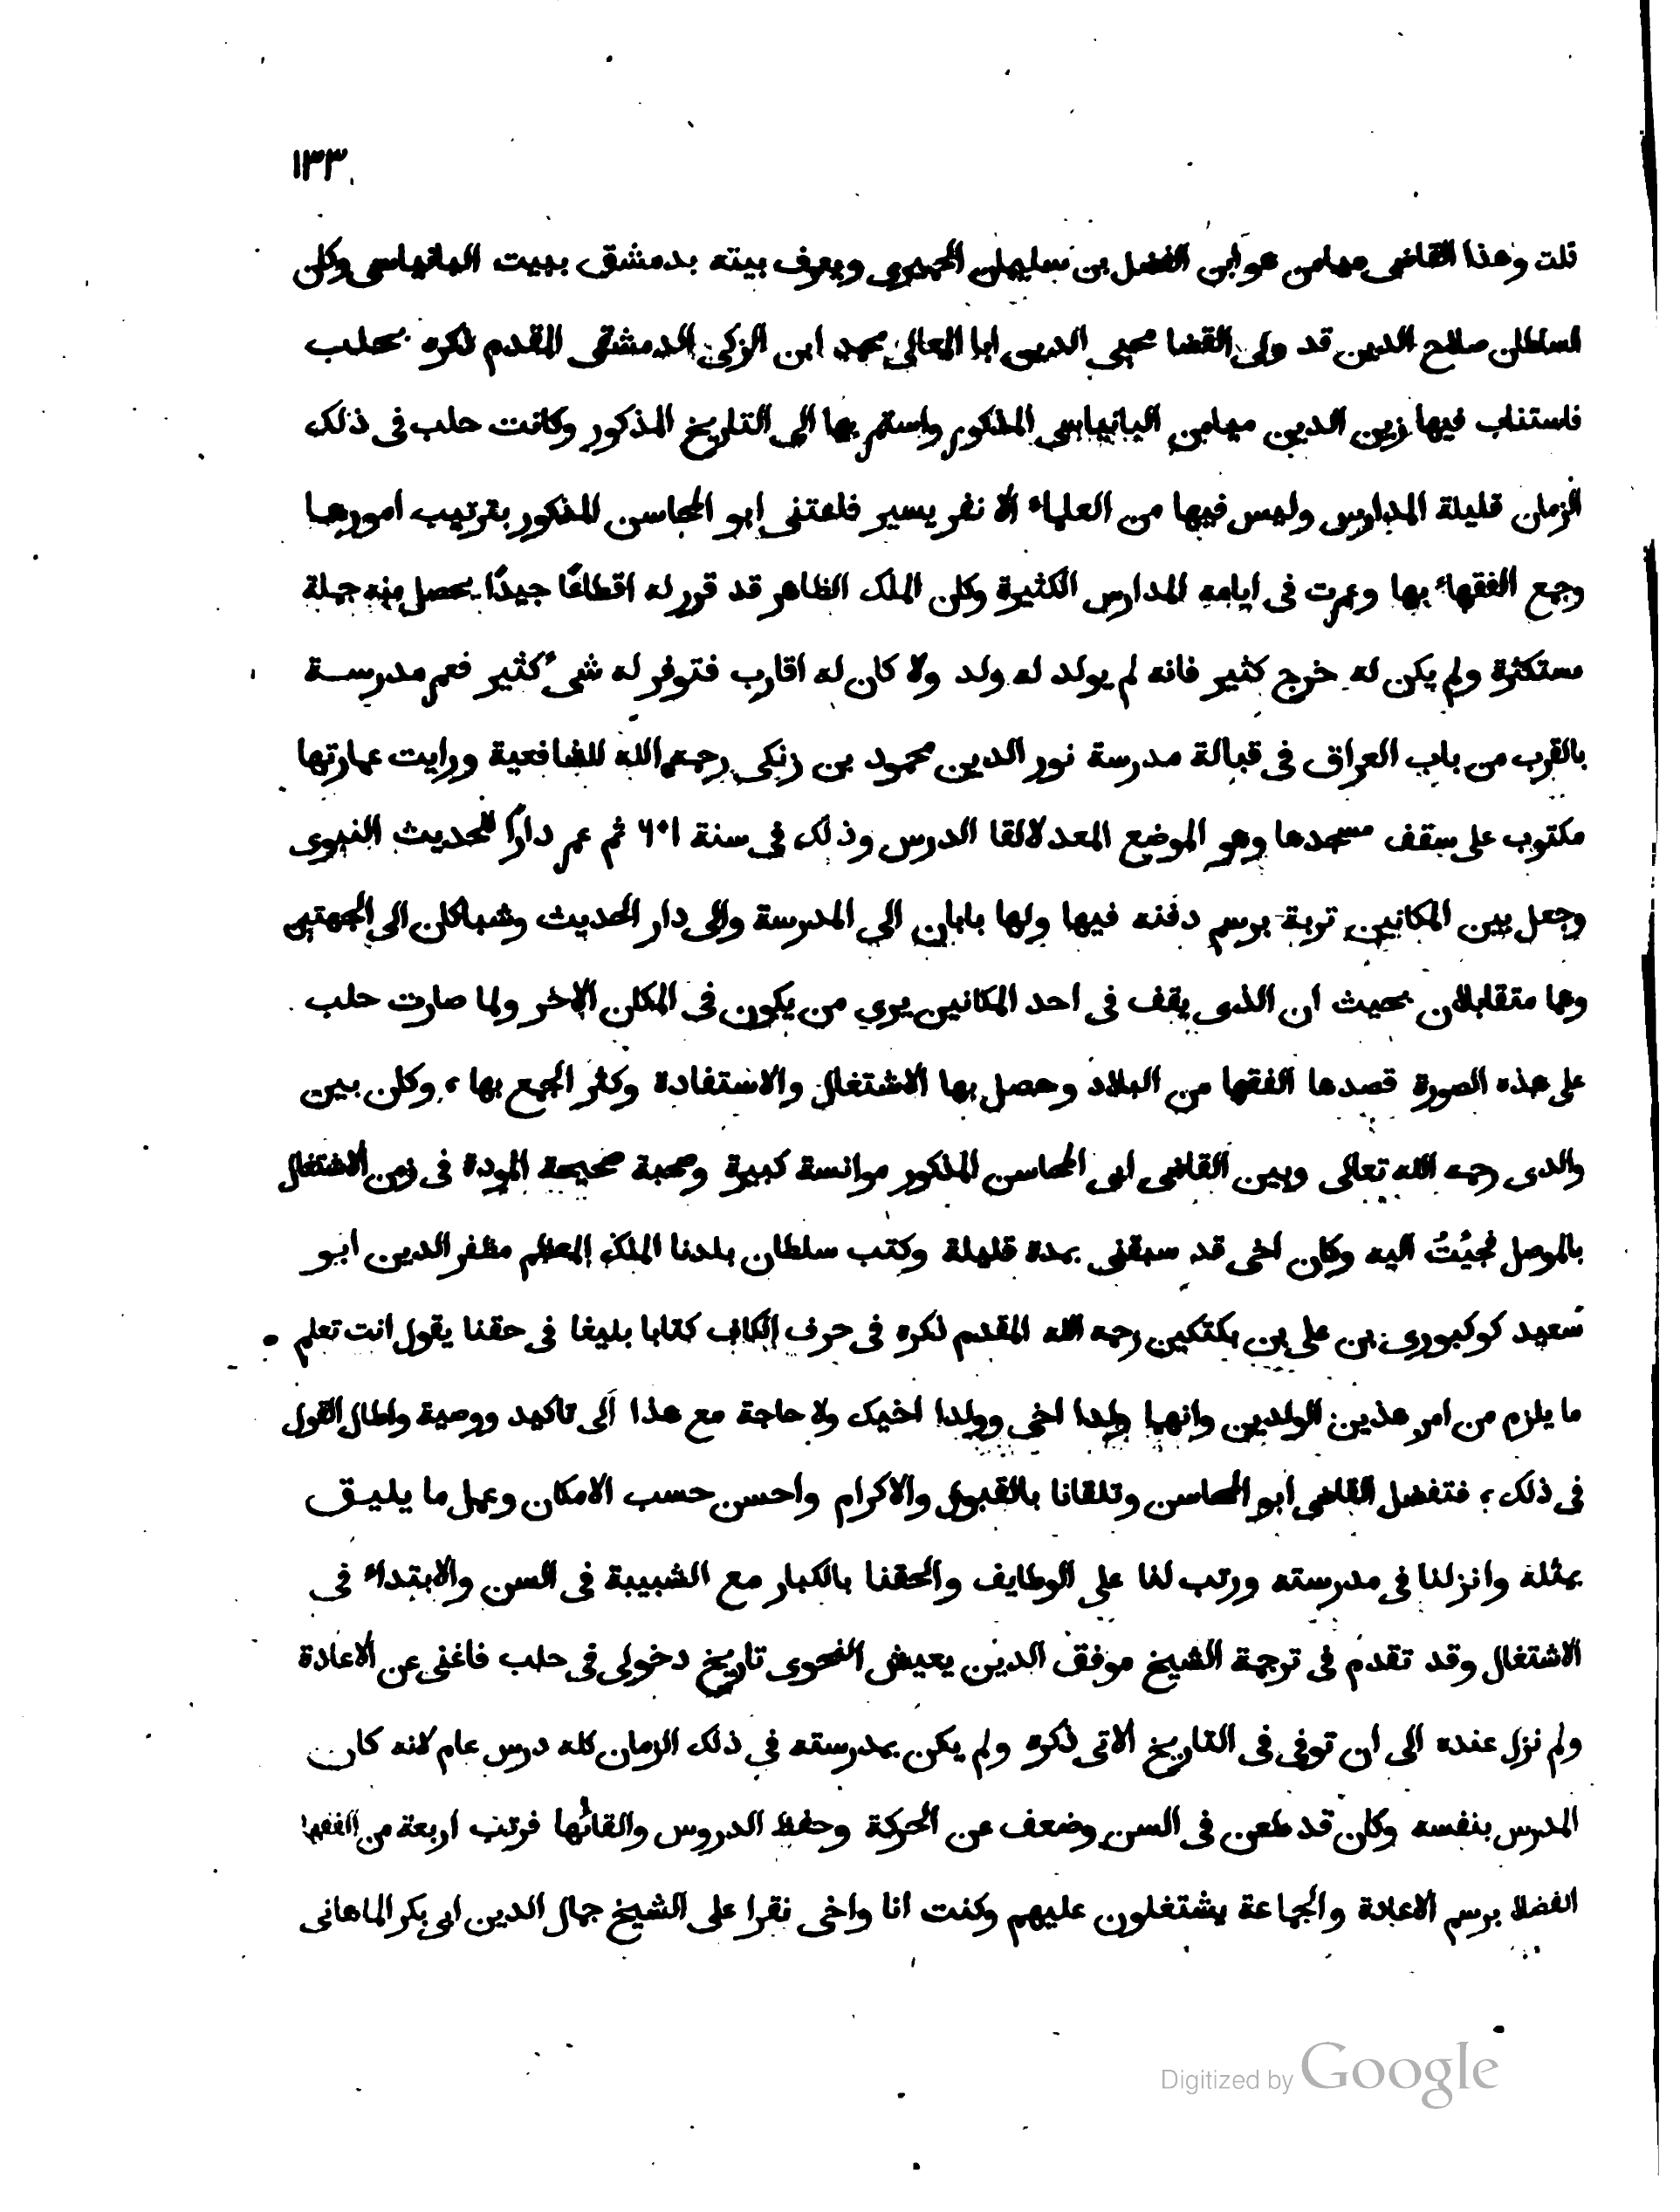 ١٣٣
قلت وهذا القاضى ميامن هو ابن الفضل بن سليمان الحميرى ويعرف بيته بدمشق ببيت البانياسى وكان
السلطان صلاح الدين قد ولى القضا محيى الدين ابا المعالى محمد ابن الزكى الدمشقى المقدم ذكره بحلب
فاستناب فيها زين الدين ميامن البانياسى المذكور واستمر بها الى التاريخ المذكور وكانت حلب فى ذلك
الزمان قليلة المدارس وليس فيها من العلماء الا نفر يسير فاعتنى ابو المحاسن المذكور بترتيب امورها
وجمع الفقهاء بها وعمرت فى ايامه المدارس الكثيرة وكان الملك الظاهر قد قرر له اقطاعًا جيدًا يحصل منه جملة
مستكثرة ولم يكن له خرج كثير فانه لم يولد له ولد ولا كان له اقارب فتوفر له شىء كثير فعمر مدرسة
بالقرب من باب العراق فى قبالة مدرسة نور الدين محمود بن زنكى رحمه الله للشافعية ورايت عمارتها
مكتوب على سقف مسجدها وهو الموضع المعد لالقا الدرس وذلك فى سنة ٦٠١ ثم عمر دارًا للحديث النبوى
وجعل بين المكانين تربة برسم دفنه فيها ولها بابان الى المدرسة والى دار الحديث وشباكان الى الجهتين
وهما متقابلان بحيث ان الذى يقف فى احد المكانين يرى من يكون فى المكان الاخر ولما صارت حلب
على هذه الصورة قصدها الفقها من البلاد وحصل بها الاشتغال والاستفادة وكثر الجمع بها، وكان بين
والدى رحمه الله تعالى وبين القاضى ابى المحاسن المذكور موانسة كبيرة وصحبة صحيحة المودة فى زمن الاشتغال
بالموصل فجيُتُ اليه وكان اخى قد سبقنى بمدة قليلة وكتب سلطان بلدنا الملك المعظم مظفر الدين ابو
سعيد كوكبورى بن على بن بكتكين رحمه الله المقدم ذكره فى حرف الكاف كتابا بليغا فى حقنا يقول انت تعلم
ما يلزم من امر هذين الولدين وانهما ولدا اخى وولدا اخيك ولا حاجة مع هذا الى تاكيد ووصية واطال القول
فى ذلك، فتفضل القاضى ابو المحاسن وتلقانا بالقبول والاكرام واحسن حسب الامكان وعمل ما يليق
بمثله وانزلنا فى مدرسته ورتب لنا على الوظايف والحقنا بالكبار مع الشبيبة فى السن والابتداء فى
الاشتغال وقد تقدم فى ترجمة الشيخ موفق الدين يعيش النحوى تاريخ دخولى فى حلب فاغنى عن الاعادة
ولم نزل عنده الى ان توفى فى التاريخ الاتى ذكره ولم يكن بمدرسته فى ذلك الزمان كله درس عام لانه كان
المدرس بنفسه وكان قد طعن فى السن وضعف عن الحركة وحفظ الدروس والقائها فرتب اربعة من الفقها
الفضلا برسم الاعادة والجماعة يشتغلون عليهم وكنت انا واخى نقرا على الشيخ جمال الدين ابى بكر الماهانى
Digitized by Google